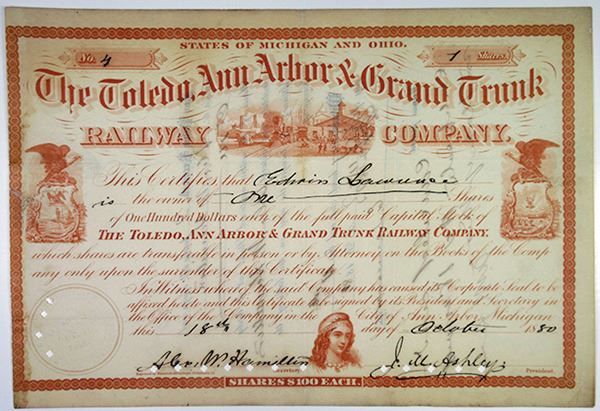 STATES OF MICHIGAN AND OHIO.
No. 4
1 Shares
The Toledo, Ann Arbor & Grand Trunk
RAILWAY COMPANY.
This Certifies that Edwin Lawrence
is the owner of One Shares
of One Hundred Dollars each of the full paid Capital Stock of
THE TOLEDO, ANN ARBOR & GRAND TRUNK RAILWAY COMPANY,
which shares are transferable in person or by Attorney on the Books of the Comp
any only upon the surrender of this Certificate.
In Witness whereof the said Company has caused its Corporate Seal to be
affixed hereto and this Certificate to be signed by its President and Secretary in
the Office of the Company in the City of Ann Arbor Michigan
this 18th day of October 1880
Alex. W. Hamilton J. M. Ashley
Secretary. President.
SHARES $100 EACH.